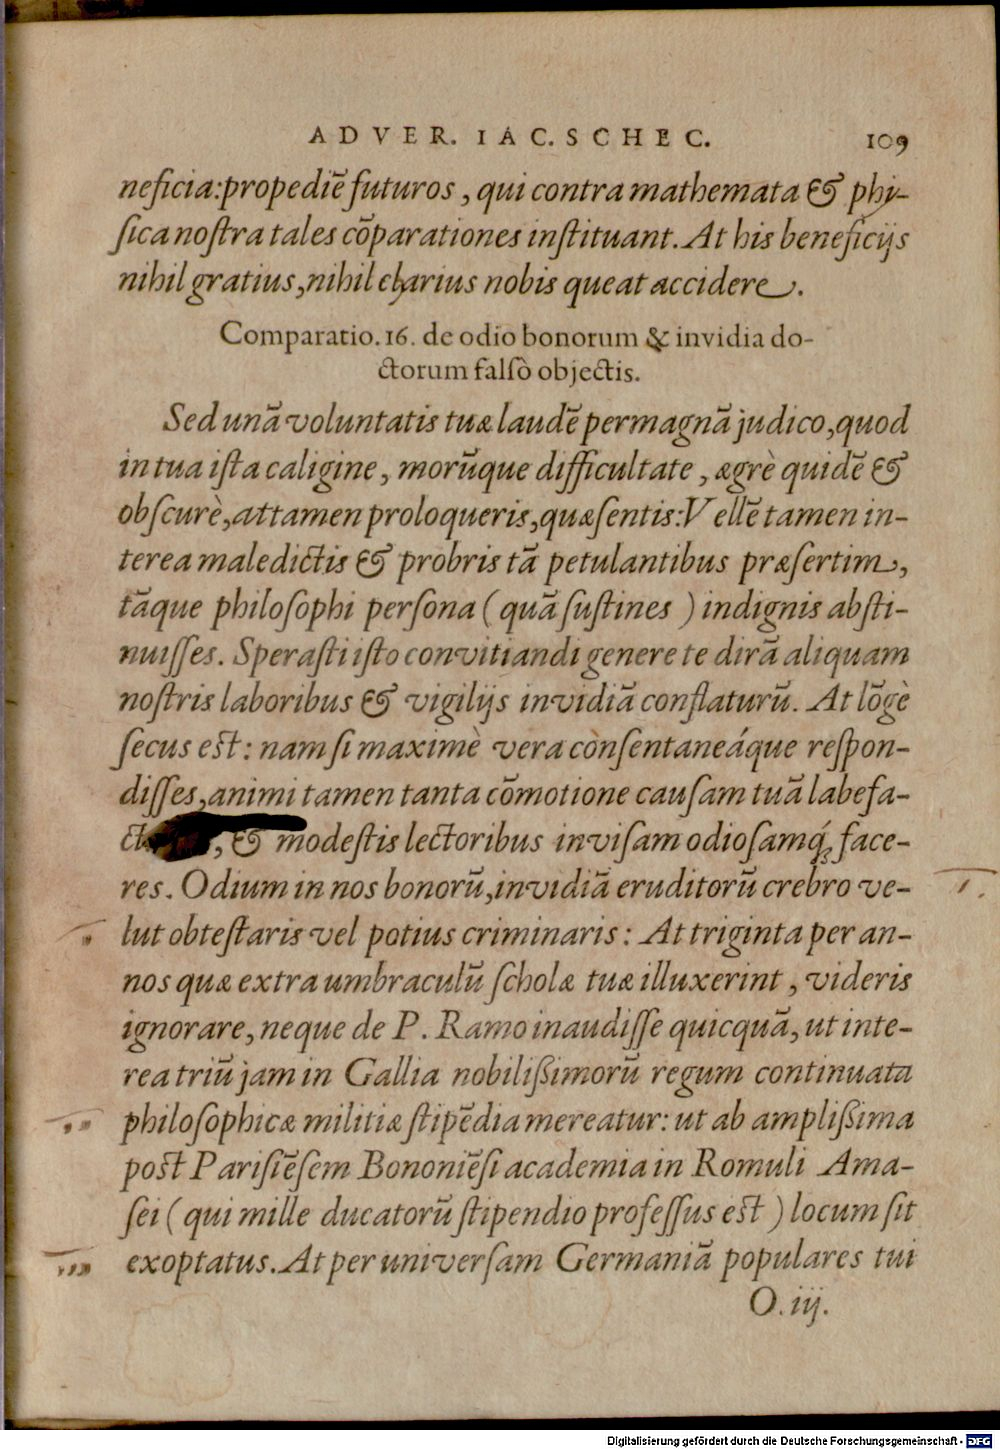 ADVER. IAC. SCHEC. 109
neficia: propediē futuros, qui contra mathemata & phy-
ſica noſtra tales cōparationes inſtituant. At his beneficijs
nihil gratius, nihil charius nobis queat accidere.
Comparatio. 16. de odio bonorum & invidia do-
ctorum falſò objectis.
Sed unā voluntatis tuæ laudē permagnā judico, quod
in tua iſta caligine, morūque difficultate, ægrè quidē &
obſcurè, attamen proloqueris, quæ ſentis: Vellē tamen in-
terea maledictis & probris tā petulantibus præſertim,
tāque philoſophi perſona (quā ſuſtines) indignis abſti-
nuiſſes. Speraſti iſto convitiandi genere te dirā aliquam
noſtris laboribus & vigilijs invidiā conflaturū. At lōgè
ſecus est: nam ſi maximè vera conſentaneáque reſpon-
diſſes, animi tamen tanta cōmotione cauſam tuā labefa-
, & modeſtis lectoribus inviſam odioſamq́; face-
res. Odium in nos bonorū, invidiā eruditorū crebro ve-
lut obteſtaris vel potius criminaris: At triginta per an-
nos quæ extra umbraculū ſcholæ tuæ illuxerint, videris
ignorare, neque de P. Ramo inaudiſſe quicquā, ut inte-
rea triū jam in Gallia nobilißimorū regum continuata
philoſophicæ militiæ ſtipēdia mereatur: ut ab amplißima
post Pariſiēſem Bononiēſi academia in Romuli Ama-
ſei (qui mille ducatorū ſtipendio profeſſus est) locum ſit
exoptatus. At per univerſam Germaniā populares tui
O. iij.
Digitalisierung gefördert durch die Deutsche Forschungsgemeinschaft - DFG